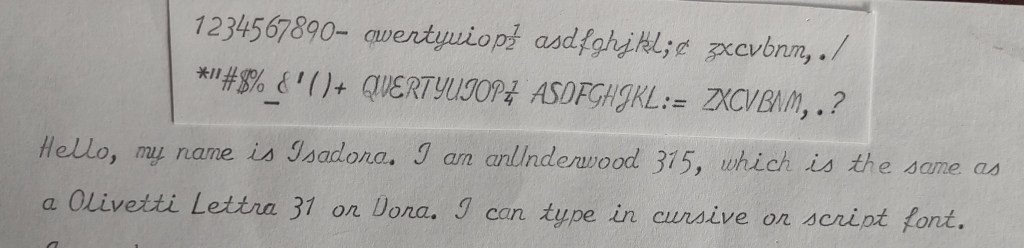 1234567890- qwertyuiop½ asdfghjkl;¢ zxcvbnm,./
*"#$%_&'()+ QWERTYUIOP¼ ASDFGHJKL:= ZXCVBNM,.?
Hello, my name is Isadora. I am anUnderwood 315, which is the same as
a Olivetti Lettra 31 or Dora. I can type in cursive or script font.